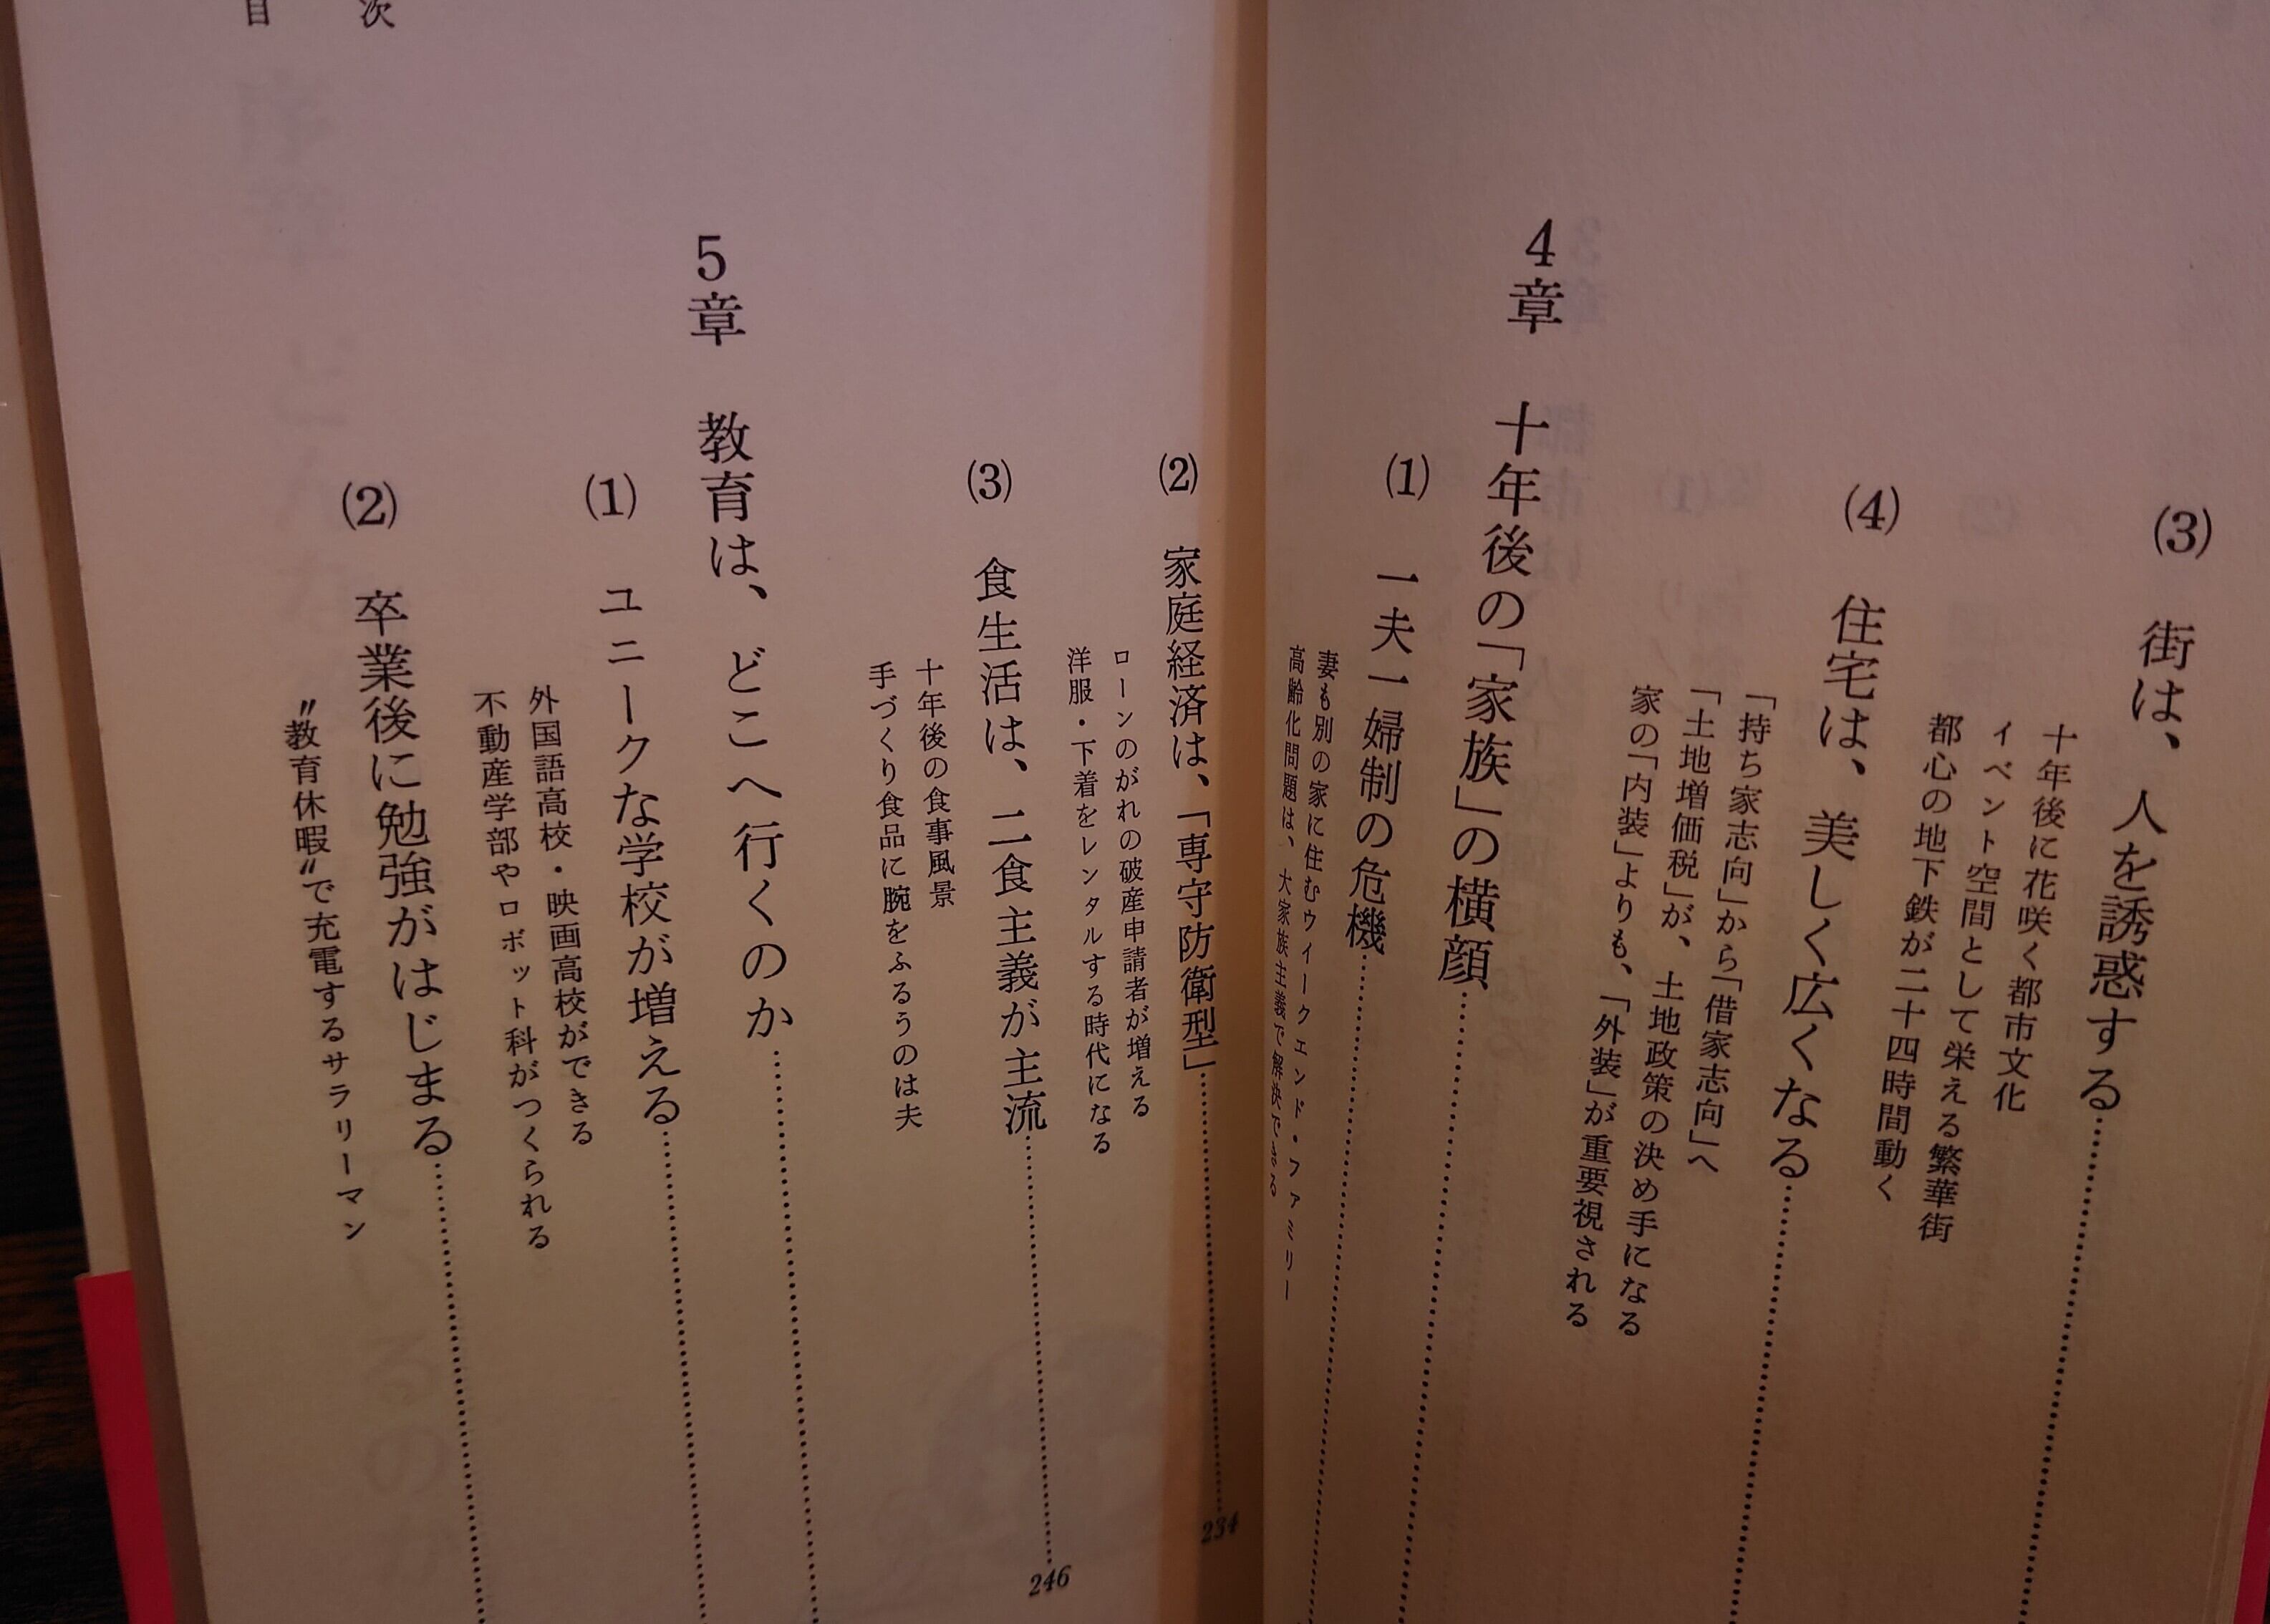 (3) 街は、人を誘惑する
十年後に花咲く都市文化
イベント空間として栄える繁華街
都心の地下鉄が二十四時間動く
(4) 住宅は、美しく広くなる
「持ち家志向」から「借家志向」へ
「土地増価税」が、土地政策の決め手になる
家の「内装」よりも、「外装」が重要視される
4章 十年後の「家族」の横顔
(1) 一夫一婦制の危機
妻も別の家に住むウィークエンド・ファミリー
高齢化問題は、大家族主義で解決できる
(2) 家庭経済は、「専守防衛型」 234
ローンのがれの破産申請者が増える
洋服・下着をレンタルする時代になる
(3) 食生活は、二食主義が主流 246
十年後の食事風景
手づくり食品に腕をふるうのは夫
5章 教育は、どこへ行くのか
(1) ユニークな学校が増える
外国語高校・映画高校ができる
不動産学部やロボット科がつくられる
(2) 卒業後に勉強がはじまる
〝教育休暇〟で充電するサラリーマン
目次